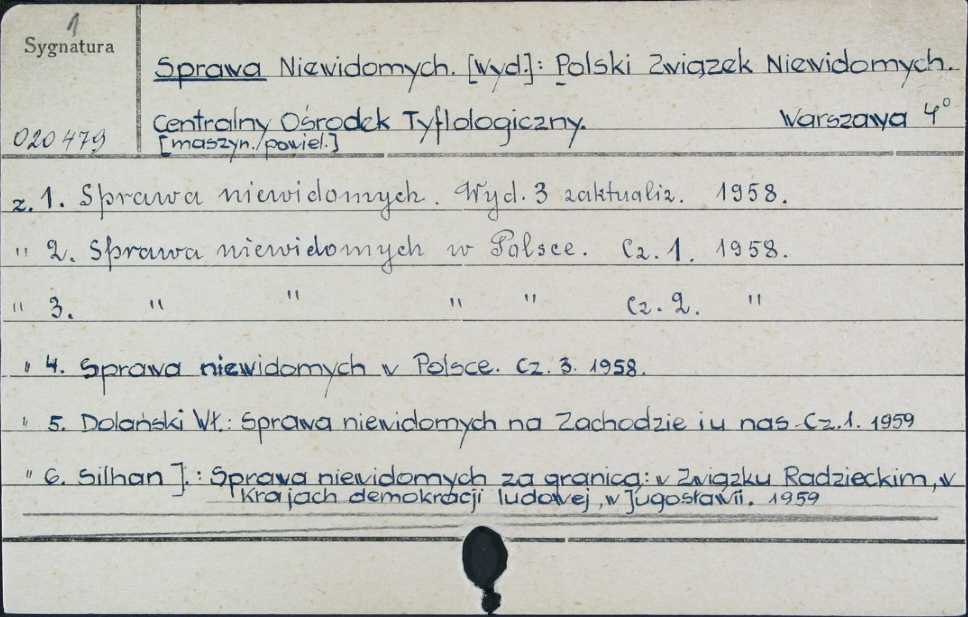 1
Sygnatura
Sprawa Niewidomych. [wyd.]: Polski Związek Niewidomych.
020479 Centralny Ośrodek Tyflologiczny. Warszawa 4°
[maszyn./powiel.]
z. 1. Sprawa niewidomych. Wyd. 3 zaktualiz. 1958.
" 2. Sprawa niewidomych w Polsce. Cz. 1. 1958.
" 3. " " " " Cz. 2. "
" 4. Sprawa niewidomych w Polsce. Cz. 3. 1958.
" 5. Dolański Wł.: Sprawa niewidomych na Zachodzie i u nas. Cz. 1. 1959
" 6. Silhan J.: Sprawa niewidomych za granicą: w Związku Radzieckim, w
Krajach demokracji ludowej, w Jugosławii. 1959